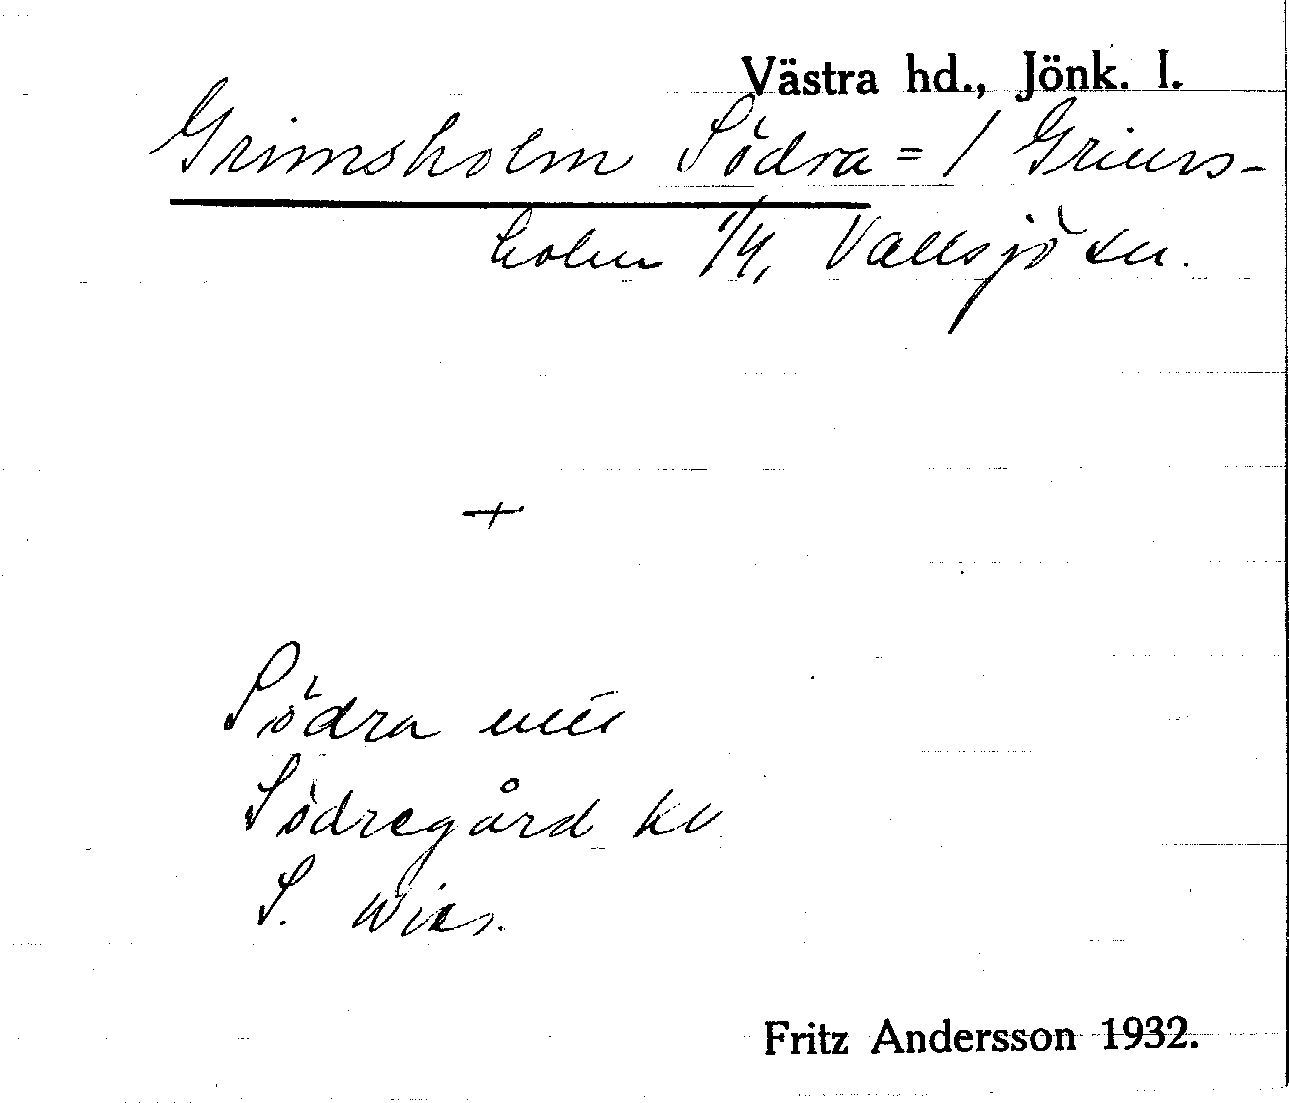 Västra hd., Jönk. l.
Grimsholm Södra = / Grims-
holm 1/4, Vallsjö sn.
+
Södra
Södregård
S.
Fritz Andersson 1932.